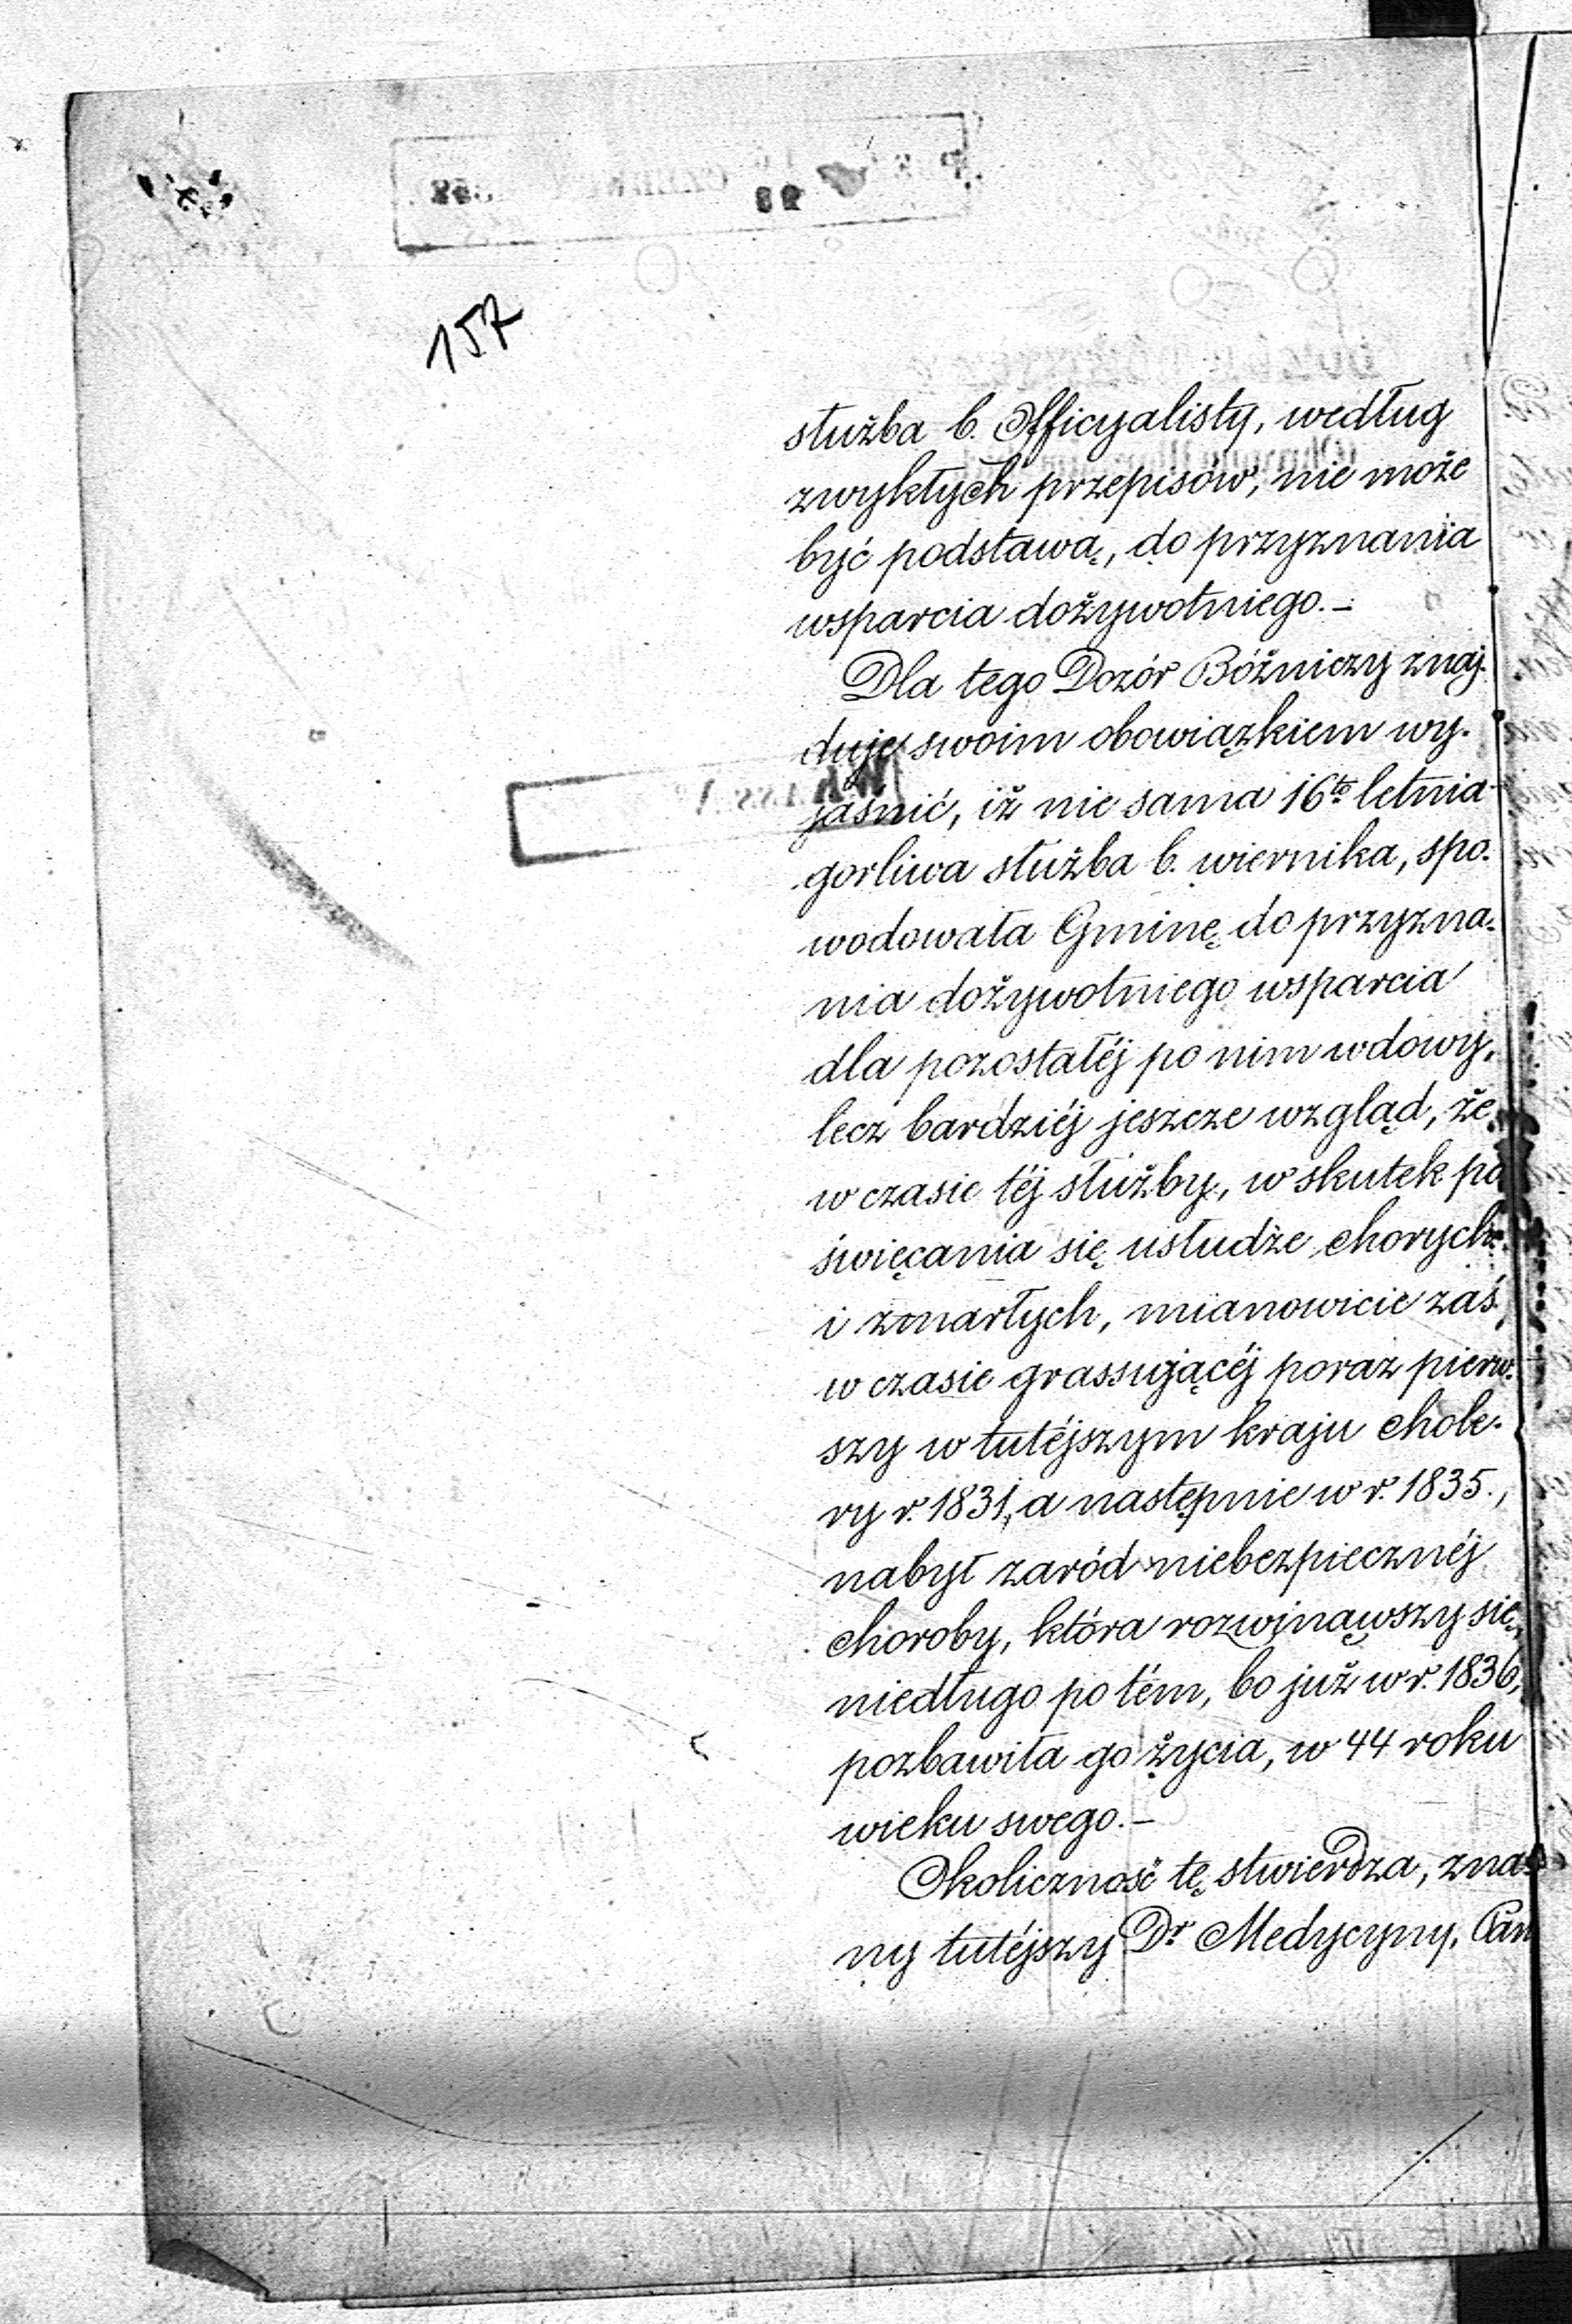 157
służba b. Officyalisty, według
zwykłych przepisów, nie może
być podstawą, do przyznania
wsparcia dożywotniego.–
Dla tego Dozór Bóżniczy znaj-
duje swoim obowiązkiem wy-
jaśnić, iż nie sama 16to letnia
gorliwa służba b. wiernika, spo-
wodowała Gminę do przyzna-
nia dożywotniego wsparcia
dla pozostałéj po nim wdowy,
lecz bardziéj jeszcze wzgląd, że
w czasie téj służby, w skutek po
święcania się usłudze chorych
i zmarłych, mianowicie zaś
w czasie grassującéj poraz pierw-
szy w tutéjszym kraju chole-
ry r. 1831, a następnie w r. 1835.,
nabył zaród niebezpiecznéj
choroby, która rozwinąwszy się,
niedługo po tém, bo już w r. 1836,
pozbawiła go życia, w 44 roku
wieku swego.–
Okoliczność tę stwierdza, zna-
ny tutéjszy Dr Medycyny, Pan